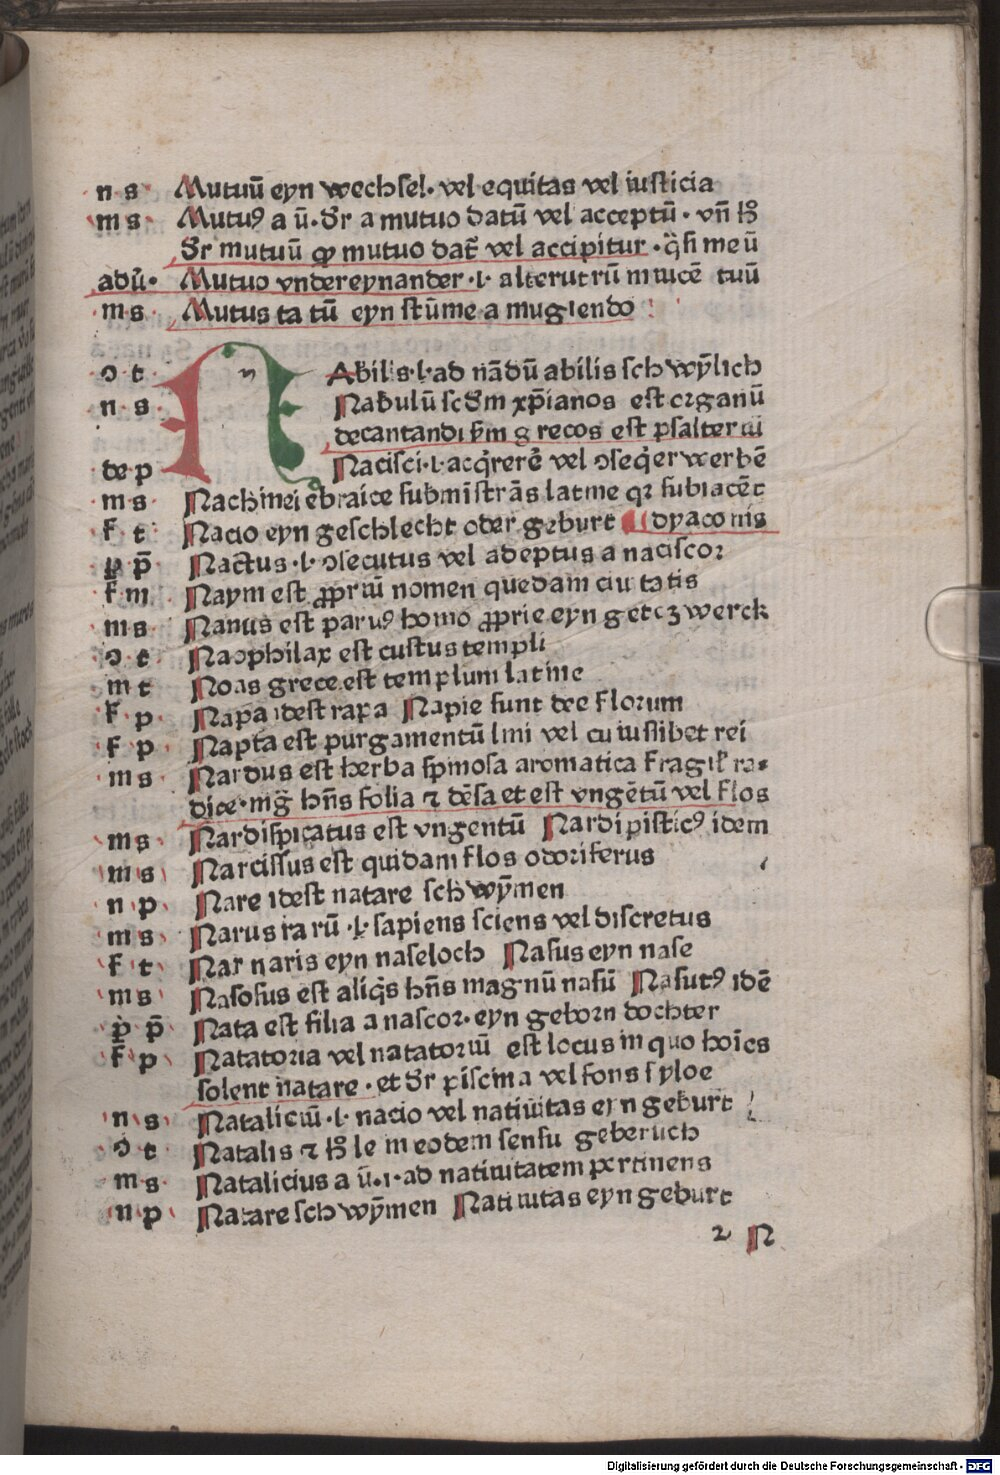 n s Mutuū eyn wechsel· vel equitas vel iusticia
m s Mutuꝰ a ū· dr̄ a mutuo datū vel acceptū· vn̄ ꝉꝫ
dr̄ mutuū ꝙ mutuo dat̄ vel accipitur· q̄si meū
adū· Mutuo vndereynander·l· alterutrū inuicē tuū
m s Mutus ta tū eyn stūme a mugiendo
ↄ t NAbilis·l·ad nādū abilis schwȳlich
n s Nabulū scd̄m xp̄ianos est organū
decantandi ẜm grecos est psalteriū
de p Nacisci·l·acq̄rerē vel ↄseq̄er werbē
m s Nachinei ebraice submīstrās latine qꝛ subiacēt
f t Nacio eyn geschlecht oder geburt dyaconis
p p̄ Nactus·l·ↄsecutus vel adeptus a naciscor
f m Naym est ꝓpriū nomen quedam ciutatis
m s Nanus est paruꝰ homo ꝓprie eyn getczwerck
ↄ t Naophilax est custus templi
m t Noas grece est templum latine
f p Napa idest rapa Napie sunt dee florum
f p Napta est purgamentū lini vel cuiuslibet rei
m s Nardus est herba spinosa aromatica fragił ra-
dice·mḡ hn̄s folia ⁊ dēsa et est vngētū vel flos
m s Nardispicatus est vngentū Nardipisticꝰ idem
m s Narcissus est quidam flos odoriferus
n p Nare idest natare schwȳmen
m s Narus ra rū·l·sapiens sciens vel discretus
f t Nar naris eyn naseloch Nasus eyn nase
m s Nasosus est aliq̄s hn̄s magnū nasū Nasutꝰ idē
p̄ p̄ Nata est filia a nascor·eyn geborn dochter
f p Natatoria vel natatoriū est locus in quo hoīes
solent natare·et dr̄ piscina vel fons syloe
n s Nataliciū·l·nacio vel natiuitas eyn geburt
ↄ t Natalis ⁊ ꝉꝫ le in eodem sensu geberlich
m s Natalicius a ū·i·ad natiuitatem pertinens
n p Natare schwȳmen Natiuitas eyn geburt
2 N
Digitalisierung gefördert durch die Deutsche Forschungsgemeinschaft - DFG